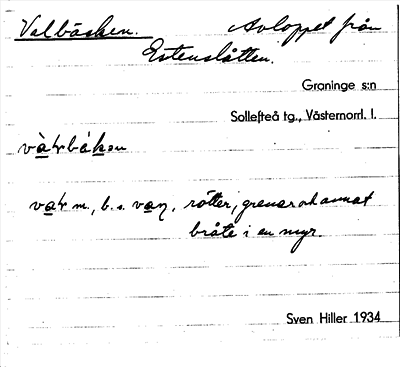 Valbäcken. Avloppet från
Estenslåtten.
Graninge s:n
Sollefteå tg., Västernorrl. l.
m., b. s. rötter, grenar och annat
bråte i en myr.
Sven Hiller 1934